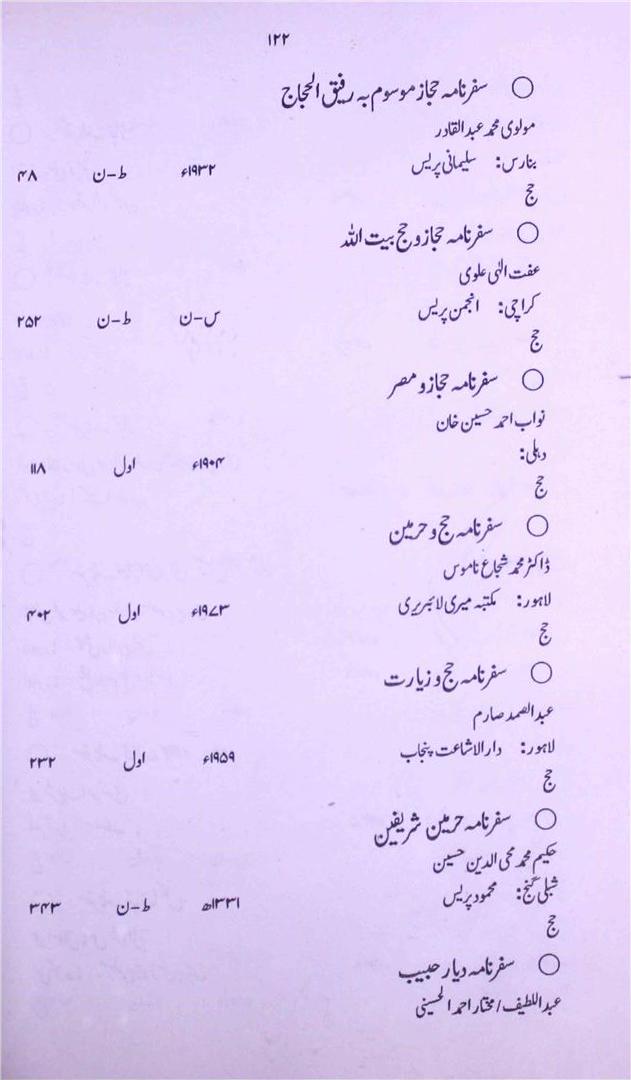 ۱۲۲
○ سفرنامہ حجاز موسوم بہ رفیق الحجاج
مولوی محمد عبدالقادر
بنارس: سلیمانی پریس ۱۹۳۲ء ط-ن ۴۸
حج
○ سفرنامہ حجاز و حج بیت اللہ
عفت الٰہی علوی
کراچی: انجمن پریس س-ن ط-ن ۲۵۲
حج
○ سفرنامہ حجاز و مصر
نواب احمد حسین خان
دہلی: ۱۹۰۴ء اول ۱۱۸
حج
○ سفرنامہ حج و حرمین
ڈاکٹر محمد شجاع ناموس
لاہور: مکتبہ میری لائبریری ۱۹۷۳ء اول ۴۰۲
حج
○ سفرنامہ حج و زیارت
عبدالصمد صارم
لاہور: دارالاشاعت پنجاب ۱۹۵۹ء اول ۲۳۲
حج
○ سفرنامہ حرمین شریفین
حکیم محمد محی الدین حسین
شبلی گنج: محمود پریس ۱۳۳۱ھ ط-ن ۳۴۳
حج
○ سفرنامہ دیار حبیب
عبداللطیف/مختار احمد الحسینی